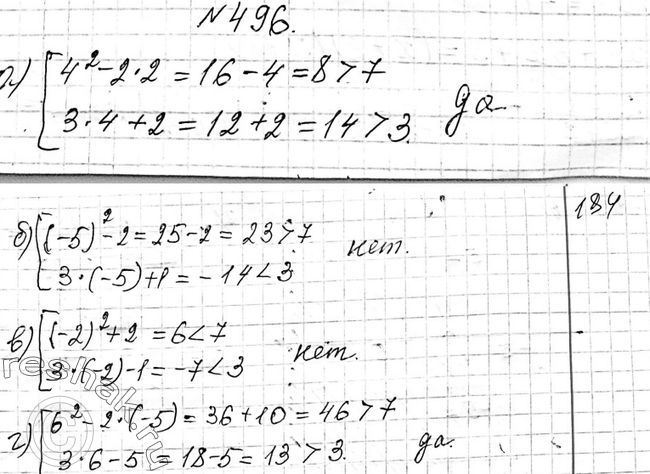 №496.
а) 4² - 2·2 = 16 - 4 = 8 > 7
3·4 + 2 = 12 + 2 = 14 > 3. да
184
б) (-5)² - 2 = 25 - 2 = 23 > 7
3·(-5) + 1 = -14 < 3 нет.
в) (-2)² + 2 = 6 < 7
3·(-2) - 1 = -7 < 3 нет.
г) 6² - 2·(-5) = 36 + 10 = 46 > 7
3·6 - 5 = 18 - 5 = 13 > 3. да.
reshak.ru